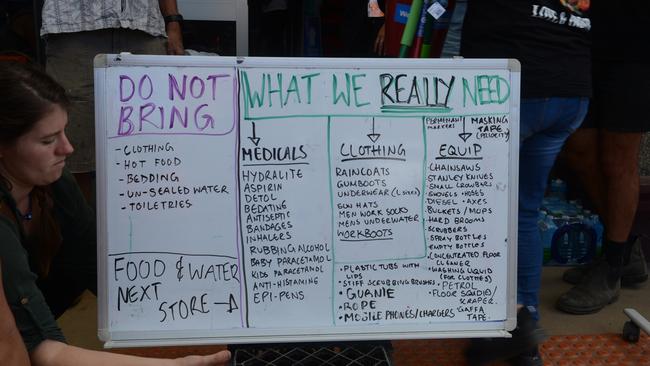 DO NOT
BRING
- CLOTHING
- HOT FOOD
- BEDDING
- UN-SEALED WATER
- TOILETRIES
FOOD & WATER
NEXT
STORE →
WHAT WE REALLY NEED
MEDICALS
HYDRALITE
ASPIRIN
DETOL
BETADINE
ANTISEPTIC
BANDAGES
INHALERS
RUBBING ALCOHOL
BABY PARACETAMOL
KIDS PARACETAMOL
ANTI-HISTAMINE
EPI-PENS
CLOTHING
RAINCOATS
GUMBOOTS
UNDERWEAR (L sizes)
SUN HATS
MEN WORK SOCKS
MENS UNDERWATER
WORKBOOTS
• PLASTIC TUBS WITH LIDS
• STIFF SCRUBBING BRUSHES
• GURNIE
• ROPE
• MOBILE PHONES/CHARGERS
PERMENANT
MARKERS
MASKING
TAPE
(PRIORITY)
EQUIP
CHAINSAWS
STANLEY KNIVES
SMALL CROWBARS
SHOVELS • HOSES
DIESEL • AXES
BUCKETS/MOPS
HARD BROOMS
SCRUBBERS
SPRAY BOTTLES
EMPTY BOTTLES
• CONCENTRATED FLOOR
CLEANER
• WASHING LIQUID
(FOR CLOTHES)
• PETROL
• FLOOR SQUIDGIE/
SCRAPER
• GAFFA
TAPE